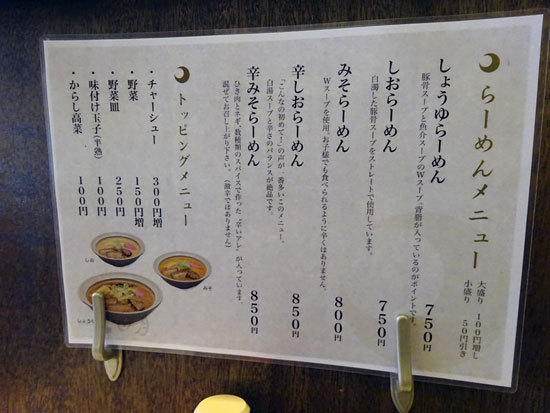 らーめんメニュー
大盛り 100円増し
小盛り 50円引き
しょうゆらーめん 750円
豚骨スープと魚介スープのWスープ、背脂が入っているのがポイントです。
しおらーめん 750円
白濁した豚骨スープをストレートで使用しています。
みそらーめん 800円
Wスープを使用。お子様でも食べられるように辛くはありません。
辛しおらーめん 850円
「こんなの初めて！」の声が一番多いこのメニュー、
白湯スープと辛さのバランスが絶品です。
辛みそらーめん 850円
ひき肉とネギ、数種類のスパイスで作った“辛いアレ”が入っています。
混ぜてお召し上がり下さい。（激辛ではありません）
トッピングメニュー
・チャーシュー 300円増
・野菜 150円増
・野菜皿 250円
・味付け玉子（半熟） 100円
・からし高菜 100円
しお
みそ
しょうゆ